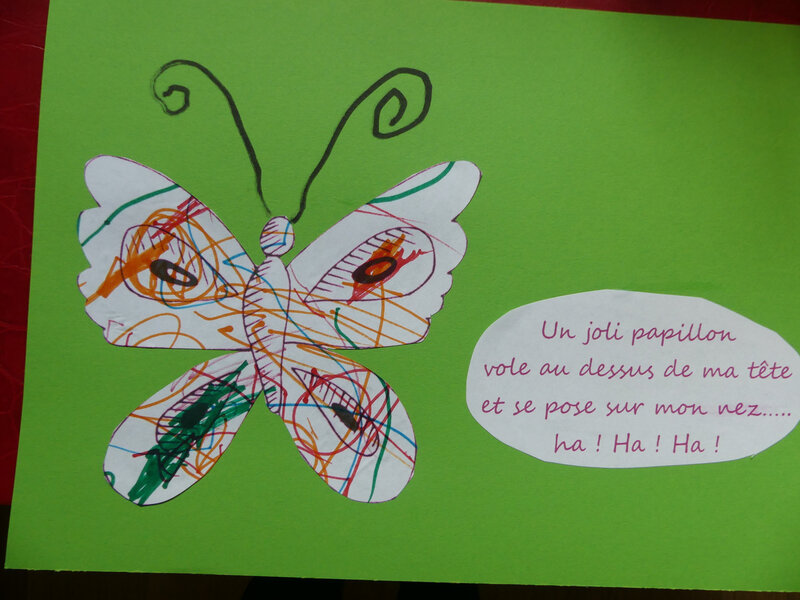 Un joli papillon
vole au dessus de ma tête
et se pose sur mon nez.....
ha ! Ha ! Ha !